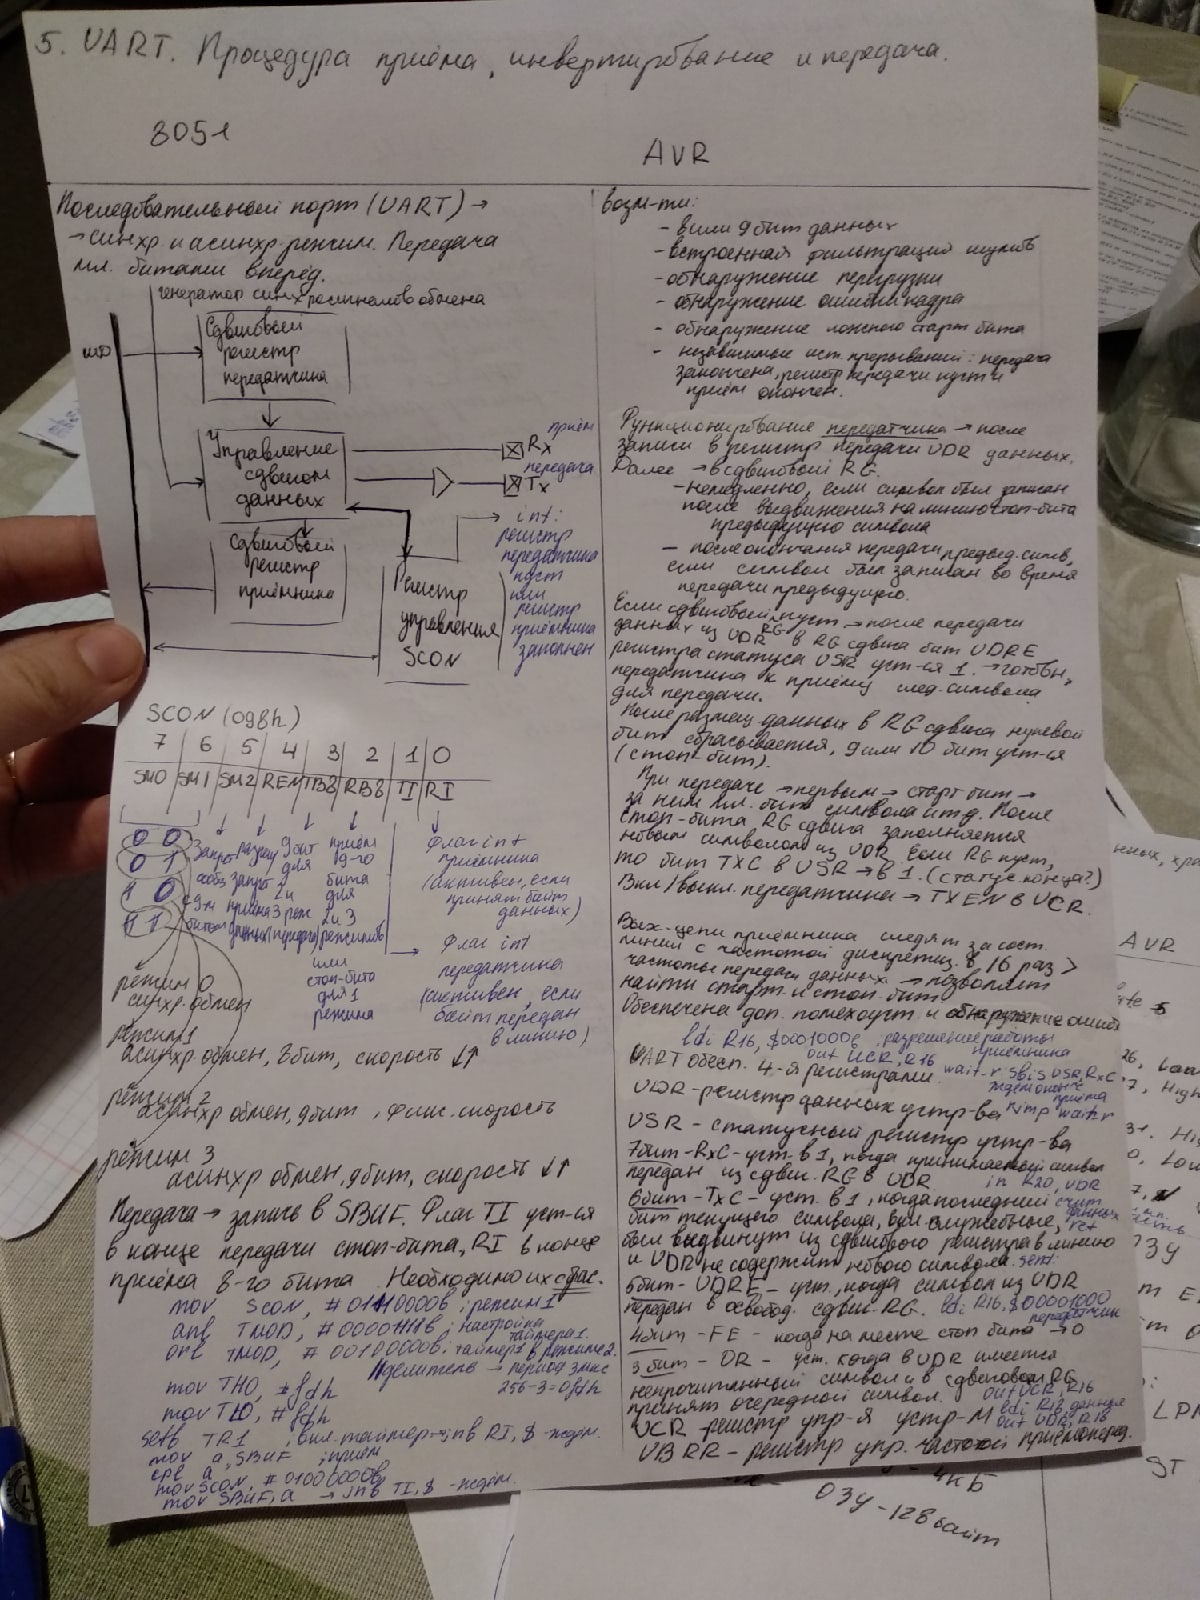 5. UART. Процедура приёма, инвертирование и передача.
8051
AVR
Последовательный порт (UART) →
→ синхр. и асинхр. режим. Передача
мл. битами вперёд.
генератор синхросигналов обмена
ШД
Сдвиговый
регистр
передатчика
Управление
сдвигом
данных
Сдвиговый
регистр
приёмника
приём
Rx
передача
Tx
int:
регистр
передатчика
пуст
или
регистр
приёмника
заполнен
Регистр
управления
SCON
SCON (098h)
7 6 5 4 3 2 1 0
SM0 SM1 SM2 REN TB8 RB8 TI RI
0 0
0 1
1 0
1 1
Флаг int
приёмника
(активен, если
принят байт
данных)
Флаг int
передатчика
(активен, если
байт передан
в линию)
или
стоп-бит
для 1
режима
режим 0
синхр. обмен
режим 1
асинхр обмен, 8бит, скорость ↓↑
режим 2
асинхр обмен, 9бит, фикс. скорость
режим 3
асинхр обмен, 9бит, скорость ↓↑
Передача → запись в SBUF. Флаг TI уст-ся
в конце передачи стоп-бита, RI в конце
приёма 8-го бита. Необходимо их сброс.
mov SCON, ; режим 1
anl TMOD, #00001111b ; настройка таймера 1.
orl TMOD, #00100000b ; таймер 1 в режиме 2.
делитель → период
256-3=0fdh
mov TH0, #fdh
mov TL0, #fdh
setb TR1 ; вкл. таймер → jnb RI, $ -ждём.
mov a, SBUF ; приём
cpl a
mov SCON, #01000000b
mov SBUF, a → jnb TI, $ -ждём.
Возм-ти:
- 8 или 9 бит данных
- встроенная фильтрация шумов
- обнаружение перегрузки
- обнаружение ошибки кадра
- обнаружение ложного старт бита
- независимые ист. прерываний: передача
закончена, регистр передачи пуст и
приём окончен.
Функционирование передатчика → после
записи в регистр передачи UDR данных.
Далее → в сдвиговый RG.
- немедленно, если символ был записан
после выдвижения на линию стоп-бита
предыдущего символа
- после окончания передачи предыд. симв,
если символ был записан во время
передачи предыдущего.
Если сдвиговый RG пуст → после передачи
данных из UDR в RG сдвига бит UDRE
регистра статуса USR уст-ся 1. → готовн.
передатчика к приёму след. символа
для передачи.
После размещ. данных в RG сдвига нулевой
бит сбрасывается, 9 или 10 бит уст-ся
(стоп-бит).
При передаче → первым → старт бит →
за ним мл. бит символа и т.д. После
стоп-бита RG сдвига заполняется
новым символом из UDR. Если RG пуст,
то бит TXC в USR → в 1. (статус конца?)
Вкл/выкл. передатчика → TXEN в UCR.
Вх-цепи приёмника следят за сост.
линии с частотой дискретиз. в 16 раз >
частоты передачи данных → позволяет
найти старт. и стоп. бит
Обеспечена доп. помехоуст и обнаружение ошиб
ldi R16, ; разрешение работы
приёмника
out UCR, R16
UART обесп. 4-я регистрами.
wait-r sbis USR, RxC
ждём оконч.
приёма
UDR - регистр данных устр-ва
rjmp wait-r
USR - статусный регистр устр-ва
7бит - RxC - уст. в 1, когда принимаемый символ
передан из сдвиг. RG в UDR
in R20, UDR
6бит - TxC - уст. в 1, когда последний
бит текущего символа, вкл. служебные,
ret
был выдвинут из сдвигового регистра в линию
и UDR не содержит нового символа.
sent:
5бит - UDRE - уст, когда символ из UDR
передан в освобод. сдвиг. RG.
ldi R16, $00001000
передатчик
4бит - FE - когда на месте стоп бита → 0
3бит - OR - уст. когда в UDR имеется
непрочитанный символ и в сдвиговой RG
принят очередной символ.
out UCR, R16
UCR - регистр упр-я устр-м
out UDR, R16
UBRR - регистр упр. частотой приёмоперед.
AVR
ОЗУ - 128 байт
4кб